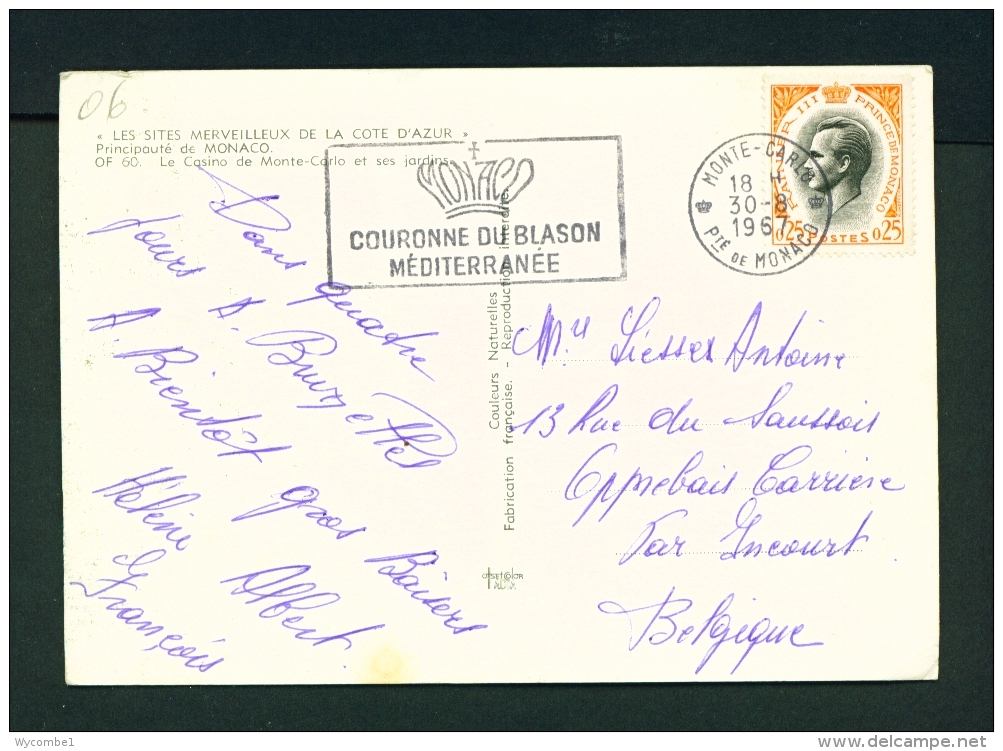 06
« LES SITES MERVEILLEUX DE LA COTE D'AZUR »
Principauté de MONACO.
OF 60. Le Casino de Monte-Carlo et ses jardins
MONACO
COURONNE DU BLASON
MÉDITERRANÉE
MONTE-CARLO
18 H
30-8
1967
PTÉ DE MONACO
RAINIER III PRINCE DE MONACO
0,25 POSTES 0,25
Dans quatre
jours A. Bruxelles
A Bientôt gros Baisers
Hélène Albert.
François
Couleurs Naturelles
Fabrication française. - Reproduction interdite
OFFSETCOLOR
Mlle Liesset Antoine
13 Rue du Saussois
Opprebais Carrière
Par Incourt
Belgique
Wycombe1
delcampe.net